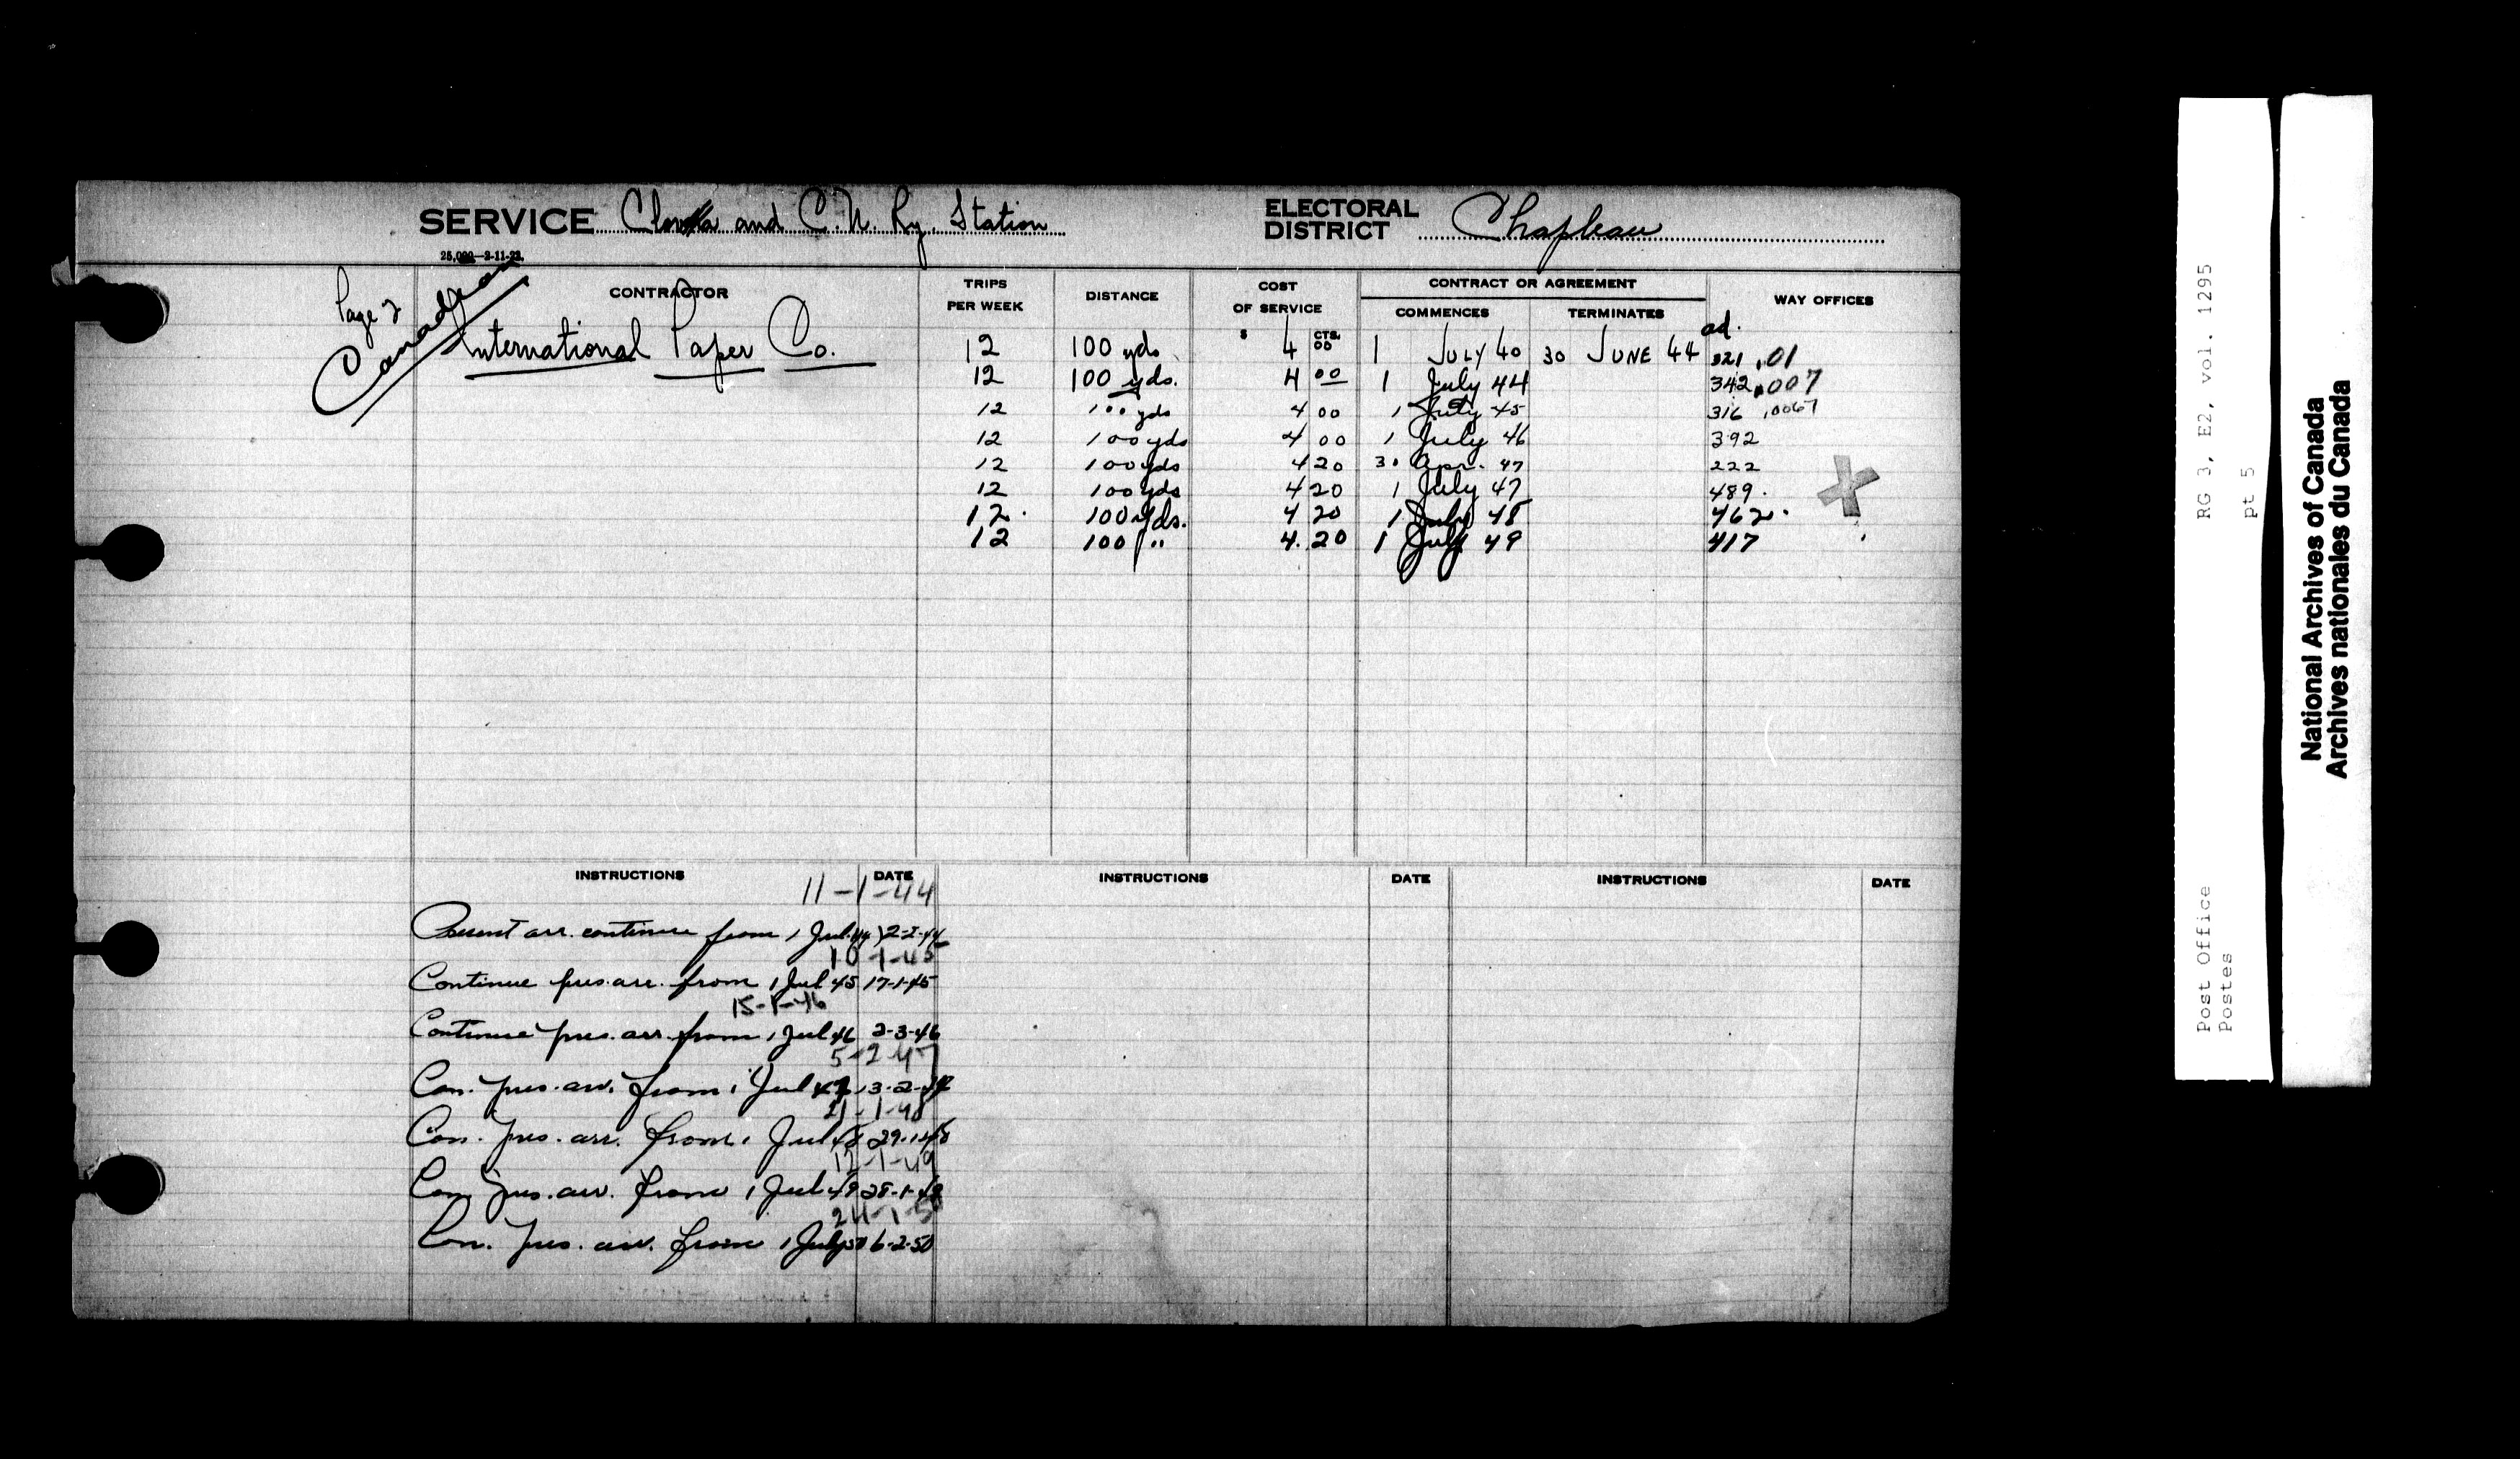 SERVICE Clova and C.N. Ry. Station ELECTORAL DISTRICT Chapleau
25,000—2-11-23.
Page 2
CONTRACTOR TRIPS PER WEEK DISTANCE COST OF SERVICE CONTRACT OR AGREEMENT COMMENCES TERMINATES WAY OFFICES
$ CTS. ad.
Canadian International Paper Co. 12 100 yds 4 00 1 July 40 30 June 44 321 .01
12 100 yds. 4 00 1 July 44 342 .007
12 100 yds 4 00 1 July 45 316 .0067
12 100 yds 4 00 1 July 46 392
12 100 yds 4 20 30 Apr. 47 222
12 100 yds 4 20 1 July 47 489.
12. 100 yds. 4 20 1 July 48 462.
12 100 " 4. 20 1 July 49 417
INSTRUCTIONS DATE INSTRUCTIONS DATE INSTRUCTIONS DATE
11-1-44
Present arr. continue from 1 Jul. 44 2-2-44
10-1-45
Continue pres. arr. from 1 Jul 45 17-1-45
15-1-46
Continue pres. arr. from 1 Jul 46 2-3-46
5-2-47
Con. pres. arr. from 1 Jul 47 13-2-47
21-1-48
Con. pres. arr. from 1 Jul 48 29-1-48
12-1-49
Con. pres. arr. from 1 Jul 49 28-1-49
24-1-50
Con. pres. arr. from 1 July 50 6-2-50
RG 3, E2, vol. 1295
pt 5
Post Office
Postes
National Archives of Canada
Archives nationales du Canada